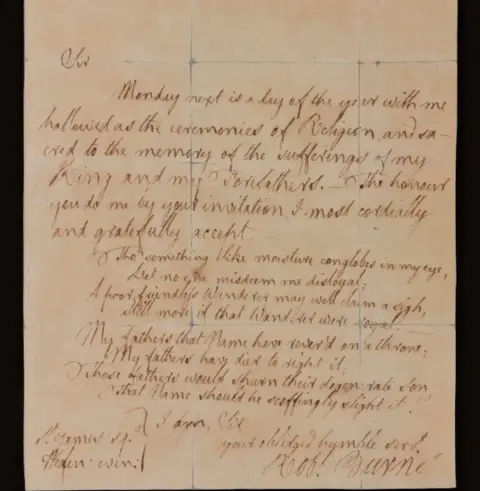 Sir
Monday next is a day of the year with me
hallowed as the ceremonies of Religion, and sa-
cred to the memory of the sufferings of my
King and my Forefathers. — The honour
you do me by your invitation I most cordially
and gratefully accept. —
Tho' something like moisture conglobes in my eye,
Let no one misdeem me disloyal;
A poor, friendless Wanderer may well claim a sigh,
Still more if that Wanderer were royal.
My fathers that Name have rever'd on a throne;
My fathers have died to right it;
Those fathers would spurn their degenerate Son
That Name should he scoffingly slight it.
I am, Sir
St. James sq.
your obliged humble servt.
Weden: even:
Robt. Burns